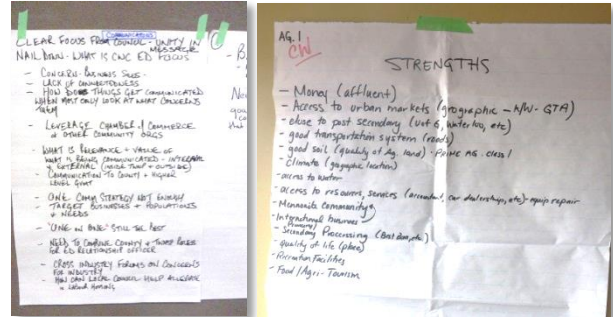 COMMUNICATIONS
CLEAR FOCUS FROM COUNCIL - UNITY IN
MESSAGE
NAIL DOWN - WHAT IS CNC ED FOCUS
- CONCERN - BUSINESS SILOS -
- LACK OF CONNECTEDNESS
- HOW DOES THINGS GET COMMUNICATED
WHEN MOST ONLY LOOK AT WHAT CONCERNS
THEM
- LEVERAGE CHAMBER OF COMMERCE
OTHER COMMUNITY ORGS
- WHAT IS RELEVANCE + VALUE OF
WHAT IS BEING COMMUNICATED - INTERNAL
EXTERNAL (INSIDE TWP + OUTSIDE)
- COMMUNICATION TO COUNTY + HIGHER
LEVEL GOVT
- ONE COMM STRATEGY NOT ENOUGH
- TARGET BUSINESSES + POPULATIONS
+ NEEDS
- "ONE ON ONE" STILL THE BEST
- NEED TO COMBINE COUNTY + ROLES
FOR ED RELATIONSHIP OFFICER
- CROSS INDUSTRY FORUMS ON CONCERNS
FOR INDUSTRY
- HOW CAN LOCAL COUNCIL HELP
LABOUR HOUSING
AG. 1
CW
STRENGTHS
- Money (affluent)
- Access to urban markets (geographic - GTA)
- close to post secondary (U of G, Waterloo, etc)
- good transportation system (roads)
- good soil (quality of Ag. land) - PRIME AG. Class 1
- Climate (geographic location)
- access to water
- access to resources, services (accountant, car dealerships, etc) - equip repair
- Mennonite Community
- International business
Primary
- Secondary Processing
- quality of life (place)
- Recreation Facilities
- Food/Agri-Tourism